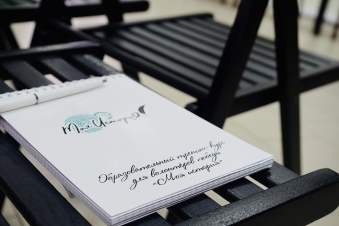 Моя История
Образовательный тренинг-курс
для волонтёров поезда
«Моя история»